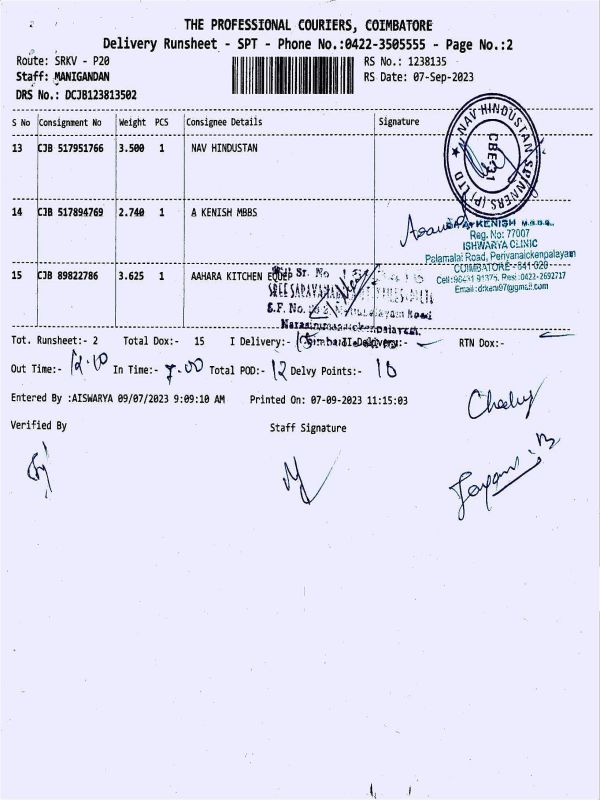 THE PROFESSIONAL COURIERS, COIMBATORE
Delivery Runsheet - SPT - Phone No.:0422-3505555 - Page No.:2
Route: SRKV - P20 RS No.: 1238135
Staff: MANIGANDAN RS Date: 07-Sep-2023
DRS No.: DCJB123813502
S No Consignment No Weight PCS Consignee Details Signature
13 CJB 517951766 3.500 1 NAV HINDUSTAN
NAV HINDUSTAN SPINNERS (P) LTD
CBE-31
14 CJB 517894769 2.740 1 A KENISH MBBS
KENISH M.B.B.S.,
Reg. No: 77007
ISHWARYA CLINIC
Palamalai Road, Periyanaickenpalayam
COIMBATORE - 641 020
Email:drkeni97@gmail.com
15 CJB 89822786 3.625 1 AAHARA KITCHEN EQUEP
Sr. No
S.F. No.
Road
Tot. Runsheet:- 2 Total Dox:- 15 I Delivery:- 15 II Delivery:- RTN Dox:-
Out Time:- 12.10 In Time:- 7.00 Total POD:- 12 Delvy Points:- 10
Entered By :AISWARYA 09/07/2023 9:09:10 AM Printed On: 07-09-2023 11:15:03
Verified By Staff Signature